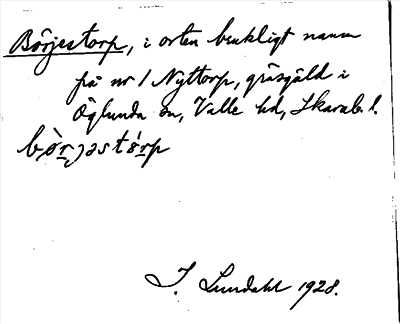 Börjestorp, i orten brukligt namn
på nr 1 Nyttorp, gräsgäld i
Öglunda sn, Valle hd, Skarab. l.
bör̲jəstór̲p
I. Lundahl 1928.